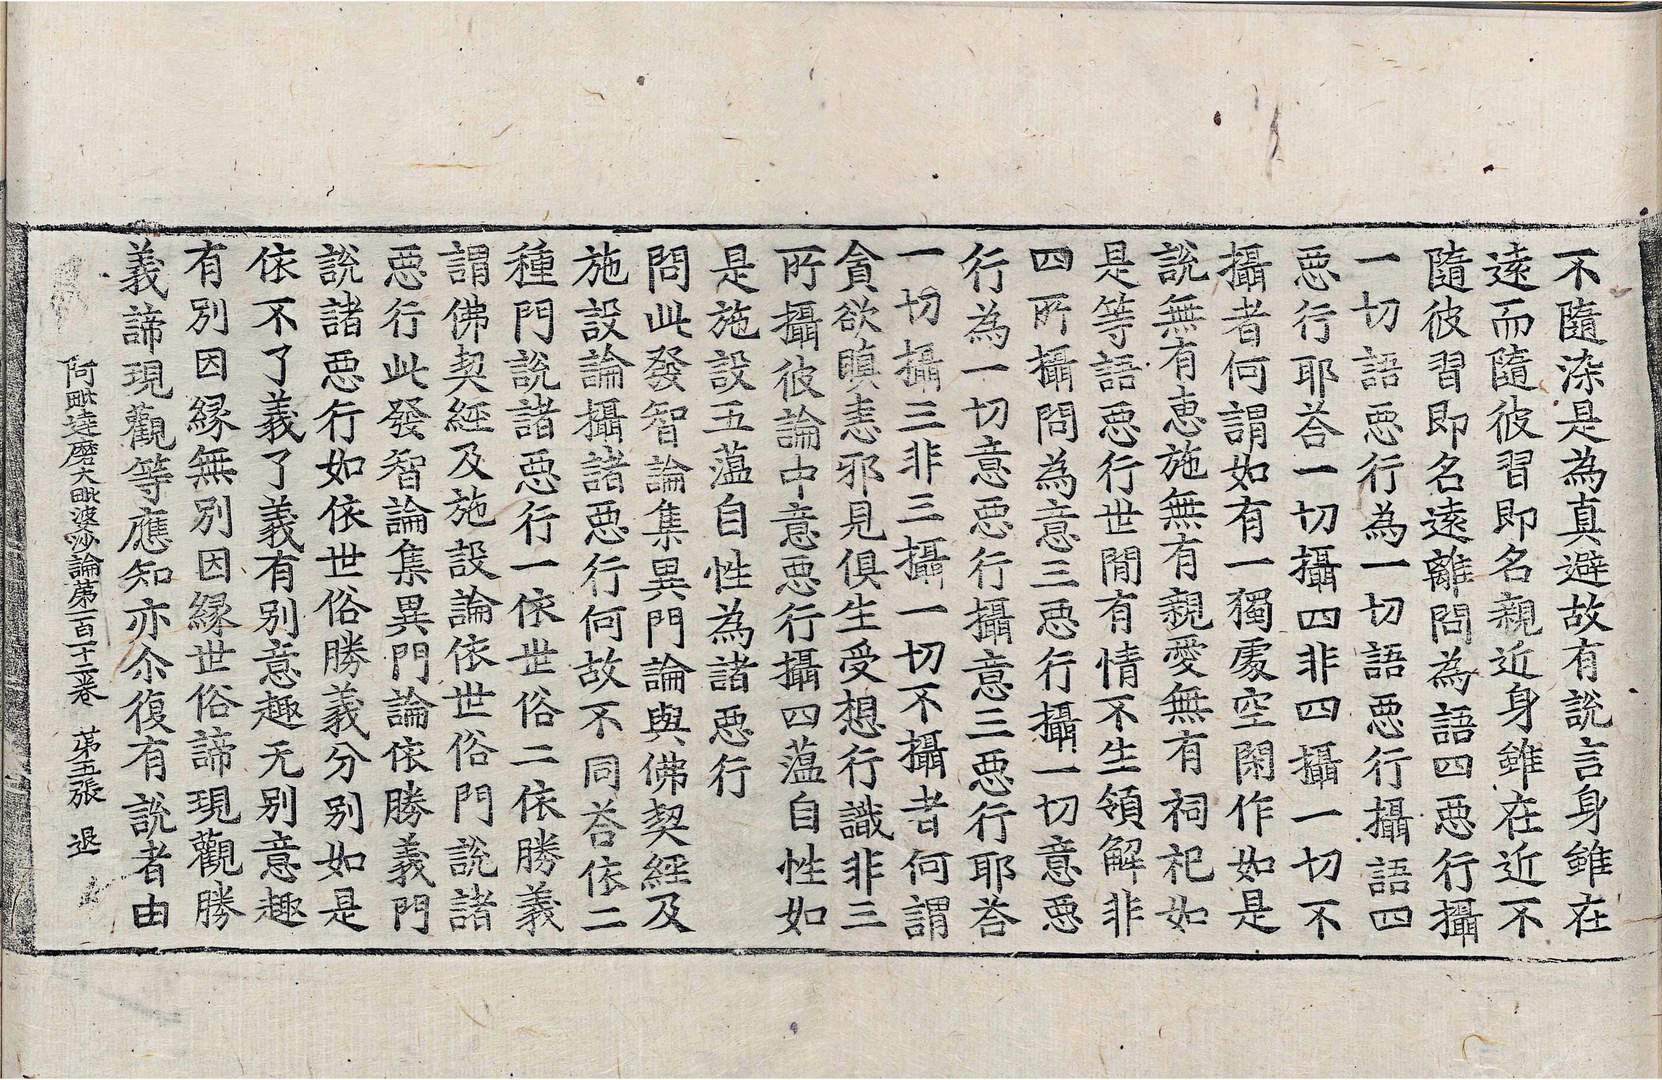 不隨染是為真避故有說言身雖在
遠而隨彼習即名親近身雖在近不
隨彼習即名遠離問為語四惡行攝
一切語惡行為一切語惡行攝語四
惡行耶荅一切攝四非四攝一切不
攝者何謂如有一獨處空閑作如是
說無有惠施無有親愛無有祠祀如
是等語惡行世間有情不生領解非
四所攝問為意三惡行攝一切意惡
行為一切意惡行攝意三惡行耶荅
一切攝三非三攝一切不攝者何謂
貪欲瞋恚邪見俱生受想行識非三
所攝彼論中意惡行攝四蘊自性如
是施設五蘊自性為諸惡行
問此發智論集異門論與佛契經及
施設論攝諸惡行何故不同荅依二
種門說諸惡行一依世俗二依勝義
謂佛契經及施設論依世俗門說諸
惡行此發智論集異門論依勝義門
說諸惡行如依世俗勝義分別如是
依不了義了義有別意趣无別意趣
有別因緣無別因緣世俗諦現觀勝
義諦現觀等應知亦尒復有說者由
阿毗達磨大毗婆沙論第一百一十二卷 第五張 退